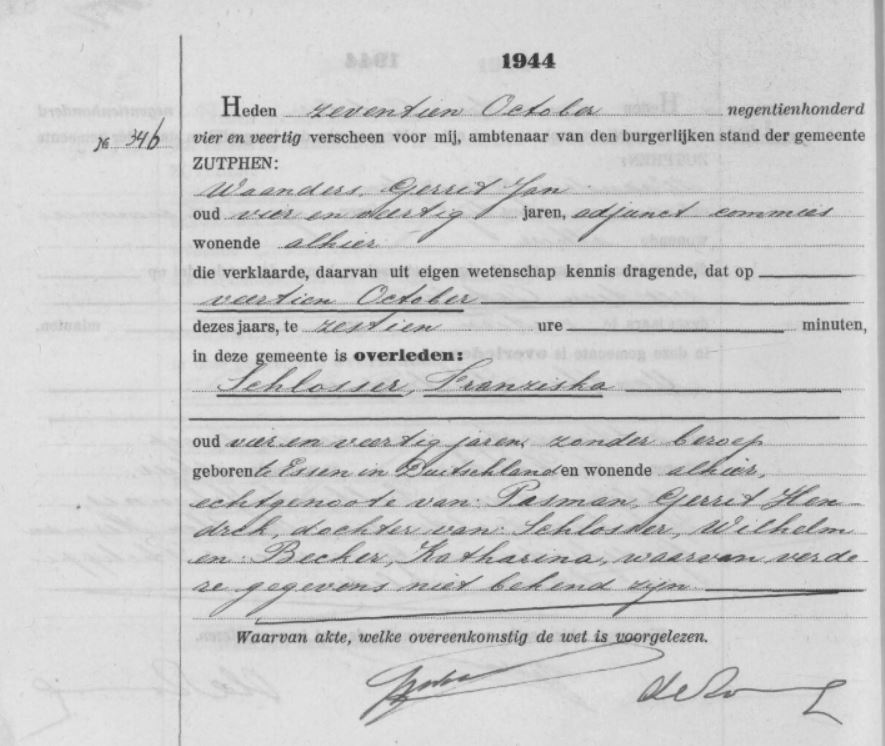 1944
Heden zeventien October negentienhonderd
№ 346 vier en veertig verscheen voor mij, ambtenaar van den burgerlijken stand der gemeente
ZUTPHEN:
Waanders, Gerrit Jan
oud vier en veertig jaren, adjunct commies
wonende alhier
die verklaarde, daarvan uit eigen wetenschap kennis dragende, dat op
veertien October
dezes jaars, te zestien ure minuten,
in deze gemeente is overleden:
Schlosser, Franziska
oud vier en veertig jaren, zonder beroep
geboren te Essen in Duitschland en wonende alhier,
echtgenoote van: Pasman, Gerrit Hen-
drik, dochter van: Schlosser, Wilhelm
en: Becher, Katharina, waarvan verde
re gegevens niet bekend zijn
Waarvan akte, welke overeenkomstig de wet is voorgelezen.